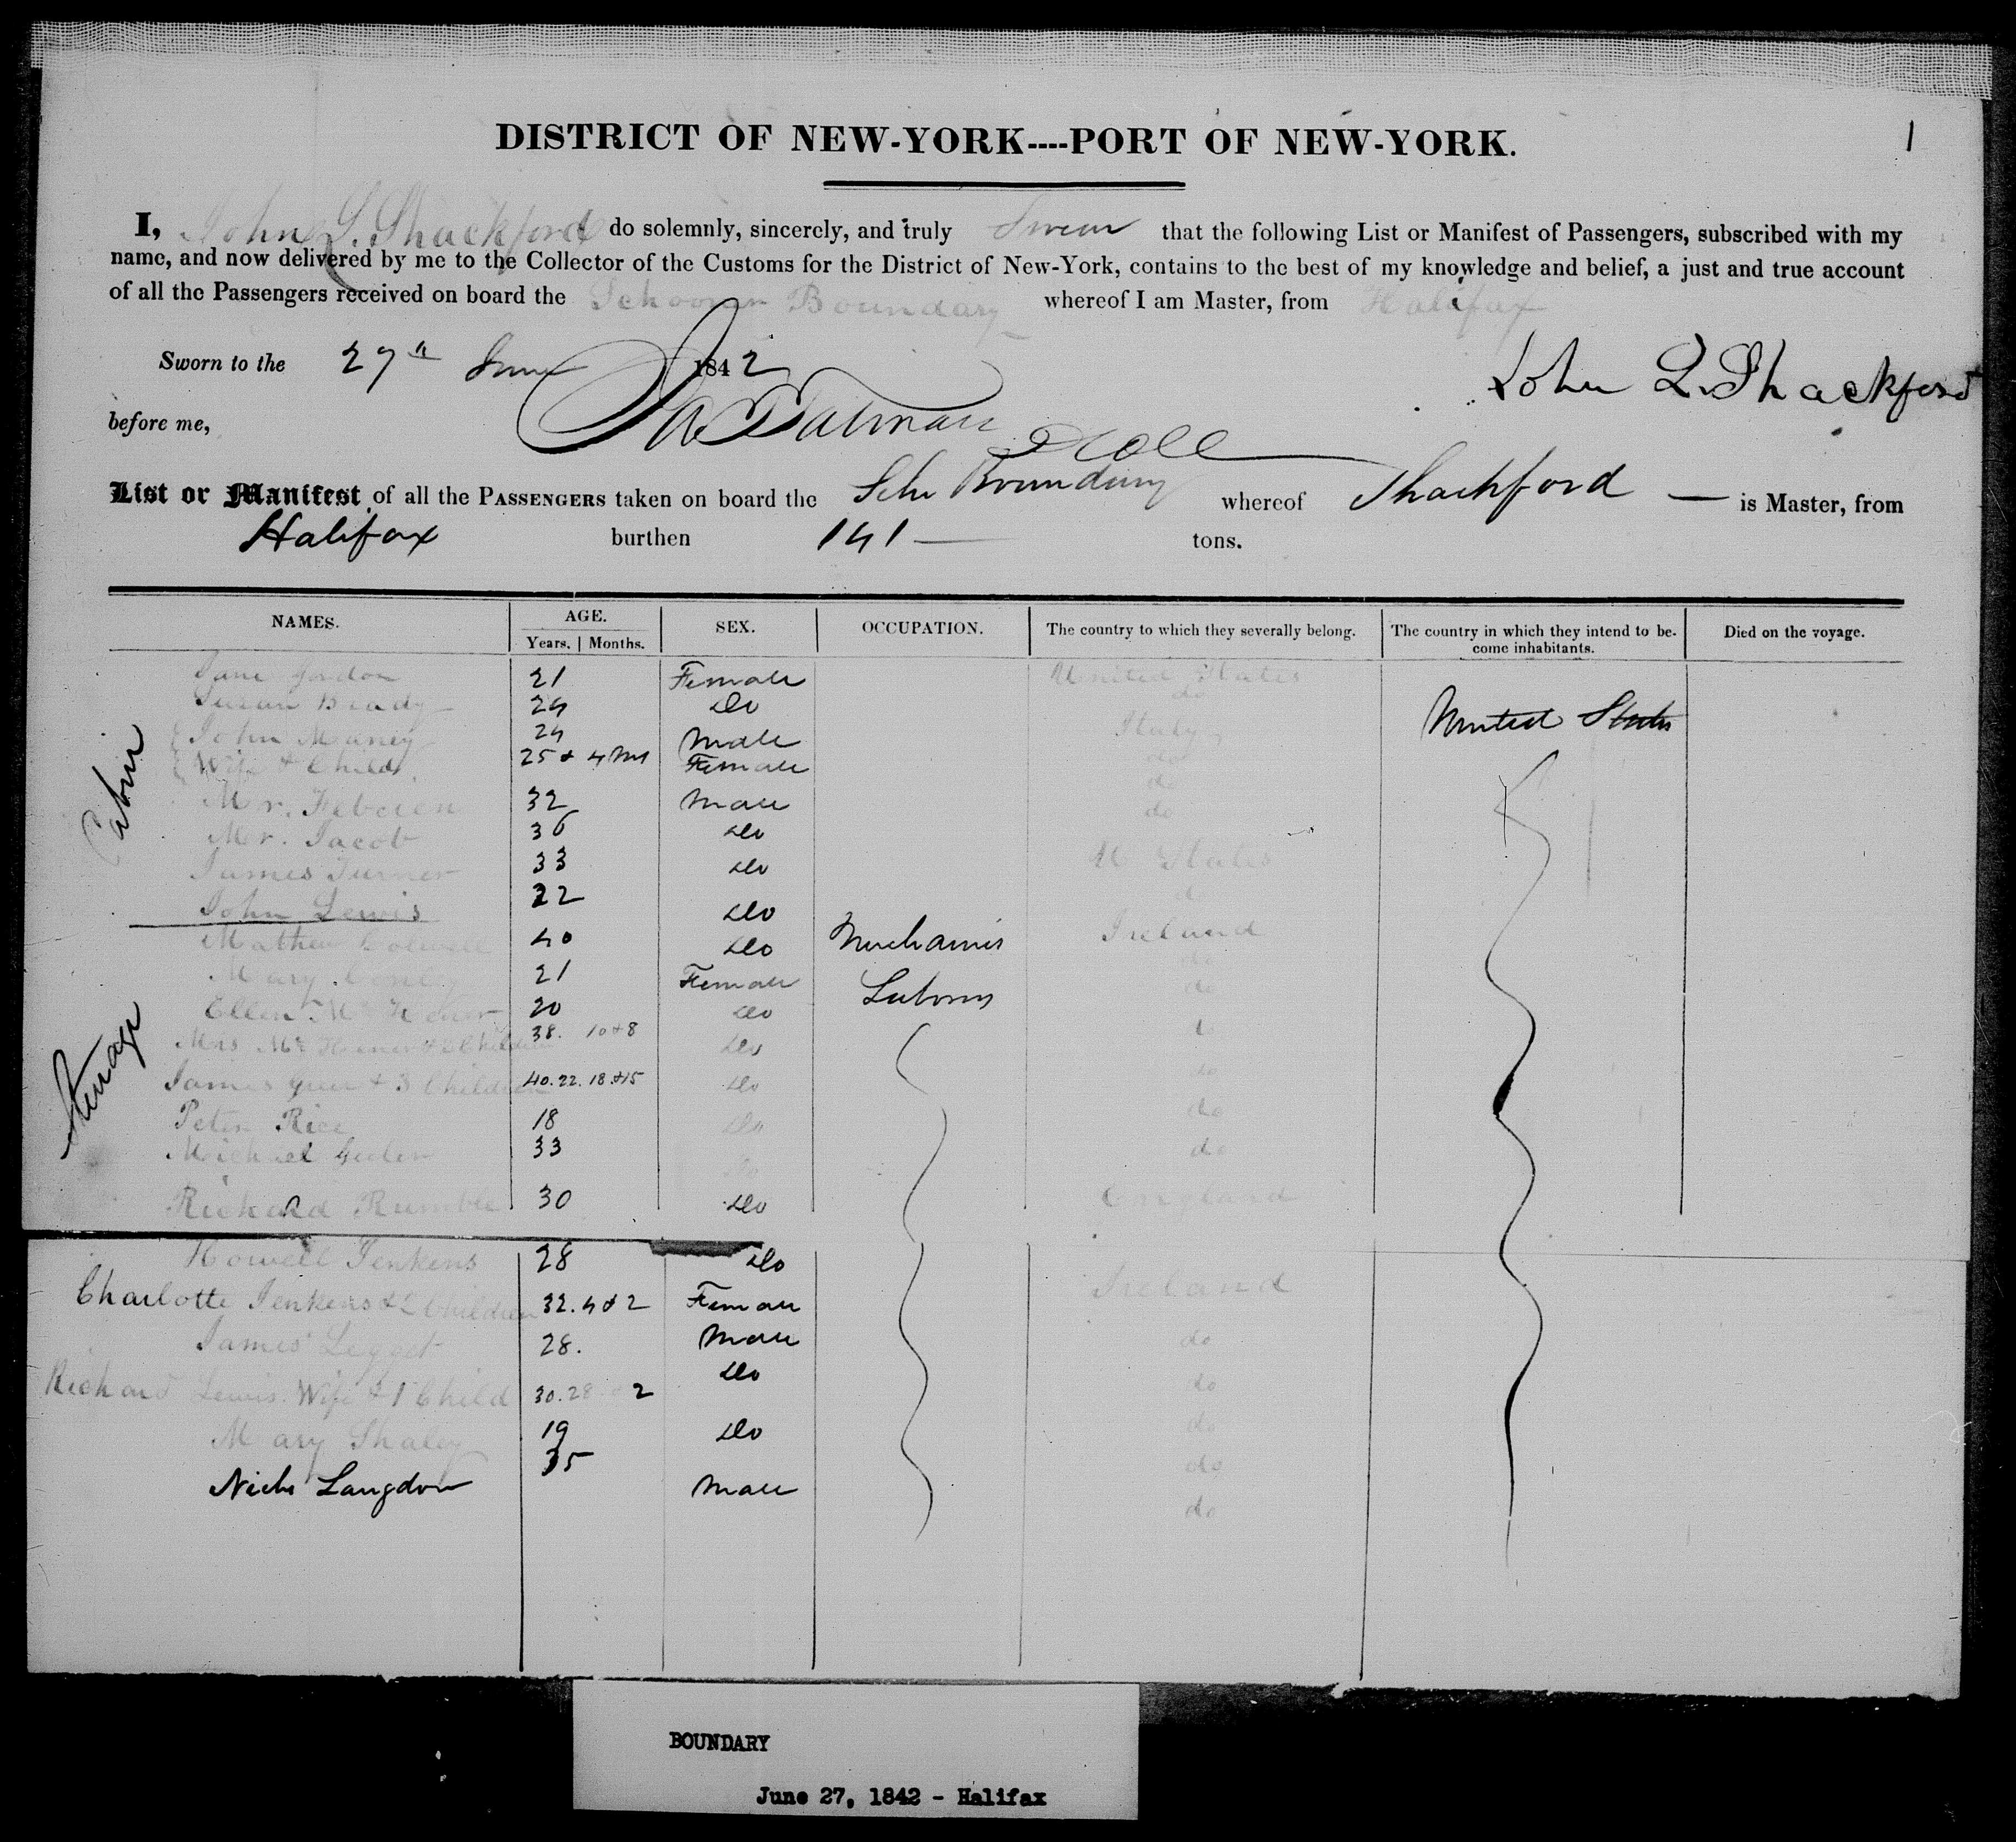 DISTRICT OF NEW-YORK----PORT OF NEW-YORK.
1
I, John L. Shackford do solemnly, sincerely, and truly Swear that the following List or Manifest of Passengers, subscribed with my
name, and now delivered by me to the Collector of the Customs for the District of New-York, contains to the best of my knowledge and belief, a just and true account
of all the Passengers received on board the Schooner Boundary whereof I am Master, from Halifax
Sworn to the 27th June 1842
John L. Shackford
before me,
List or Manifest of all the PASSENGERS taken on board the Schr Boundary whereof Shackford — is Master, from
Halifax burthen 141 — tons.
NAMES. AGE. SEX. OCCUPATION. The country to which they severally belong. The country in which they intend to be- Died on the voyage.
Years. Months. come inhabitants.
Cabin
Jane Gordon 21 Female United States
Susan Brady 24 Do do United States
John Maney 24 Male Italy
Wife & Child 25 & 4 Ms Female do
do
Mr. 32 Male do
Mr. Jacob 36 Do
James Turner 33 Do U States
John Lewis 22 Do do
Steerage
Mathew 40 Do Mechanics Ireland
Mary 21 Female Laborers do
Ellen 20 Do do
Mrs Children 38. 10 & 8 Do do
James Greer & 3 Children 40. 22. 18 & 15 Do do
Peter Rice 18 Do do
Michael 33 Do do
Richard Rumble 30 Do England
Howell Jenkens 28 Do
Charlotte Jenkens & 2 Children 32. 4 & 2 Female Ireland
James Legget 28. Male do
Richard Lewis. Wife & 1 Child 30. 28 2 Do do
Mary Shaley 19 Do do
35 do
Nichs Langdon Male do
BOUNDARY
June 27, 1842 - Halifax